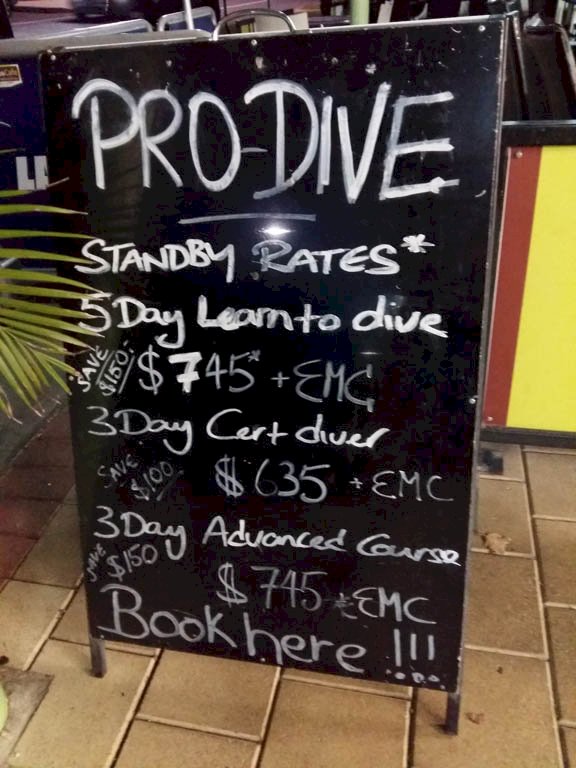 PRO-DIVE
STANDBY RATES*
5 Day Learn to dive
SAVE $150.- $745* + EMC
3 Day Cert diver
SAVE $100 $635 + EMC
3 Day Advanced Course
SAVE $150 $745 + EMC
Book here !!!